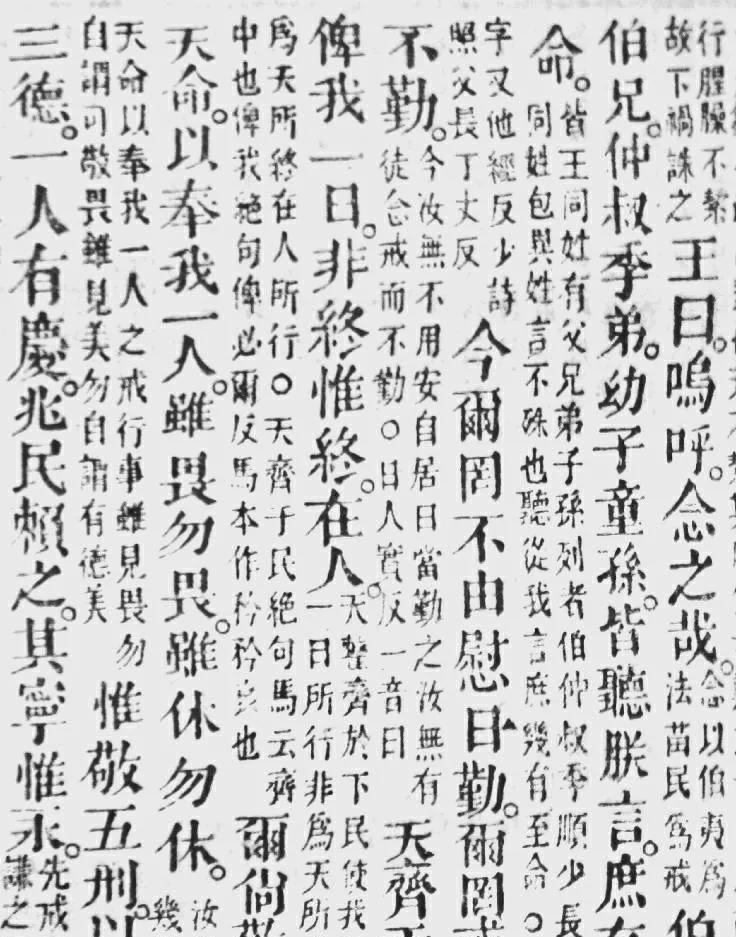 行腥臊不絜
故下禍誅之
王曰。嗚呼。念之哉。
念以伯夷爲
法苗民爲戒
伯
伯兄。仲叔季弟。幼子童孫。皆聽朕言。庶有
命。
皆王同姓有父兄弟子孫列者伯仲叔季順少長
同姓包異姓言不殊也聽從我言庶幾有至命。○
字又他經反少詩
照父長丁丈反
今爾罔不由慰日勤。爾罔或
不勤。
今汝無不用安自居日當勤之汝無有
徒念戒而不勤○日人實反一音曰
天齊于
俾我一日。非終惟終。在人。
天整齊於下民使我
一日所行非爲天所
爲天所終在人所行○天齊于民絶句馬云齊
中也俾我絶句俾必爾反馬本作矜矜哀也
爾尚敬
天命。以奉我一人。雖畏勿畏。雖休勿休。
汝
幾
天命以奉我一人之戒行事雖見畏勿
自謂可敬畏雖見美勿自謂有德美
惟敬五刑。以
三德。一人有慶。兆民賴之。其寧惟永。
先戒
謙之